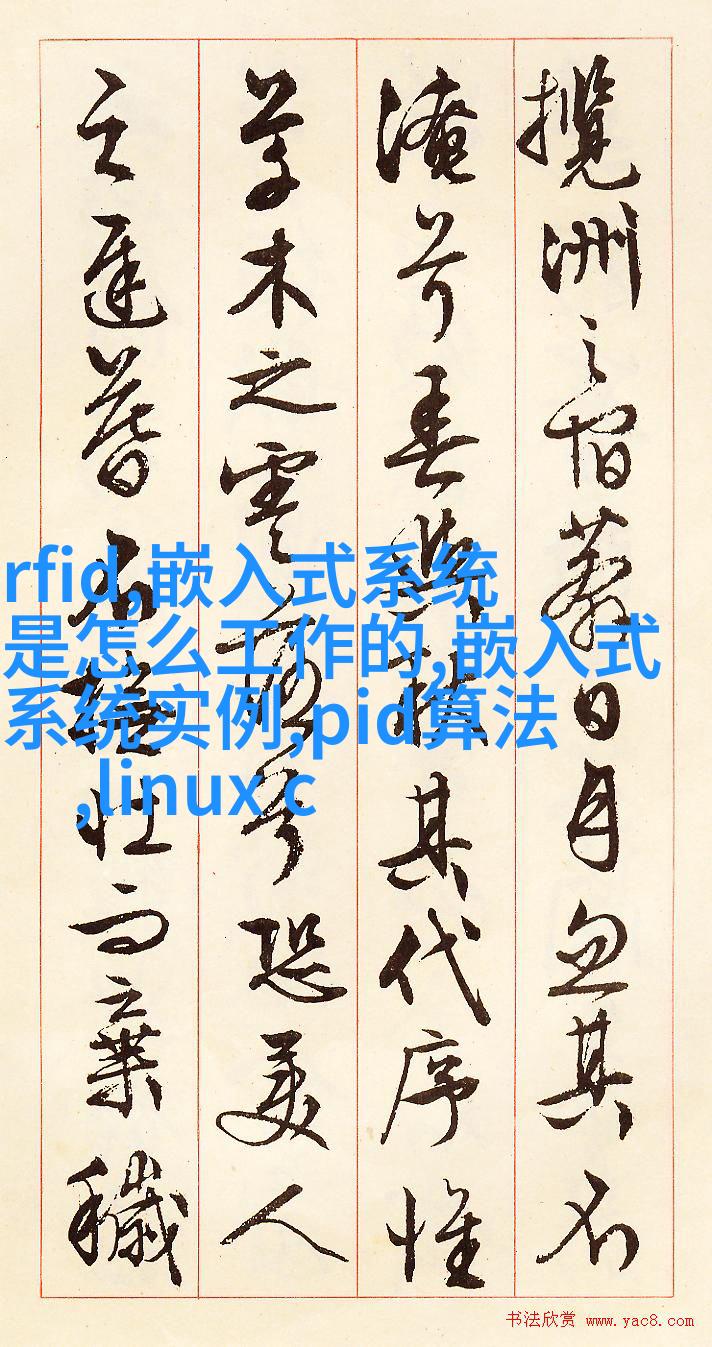 攬洲之宿莽日月忽其不
淹兮春與秋其代序惟
草木之零落兮恐美人
之遲暮不撫壯而棄穢
rfid,嵌入式系统
是怎么工作的,嵌入式
系统实例,pid算法
,linux c
书法欣赏 www.yac8.com